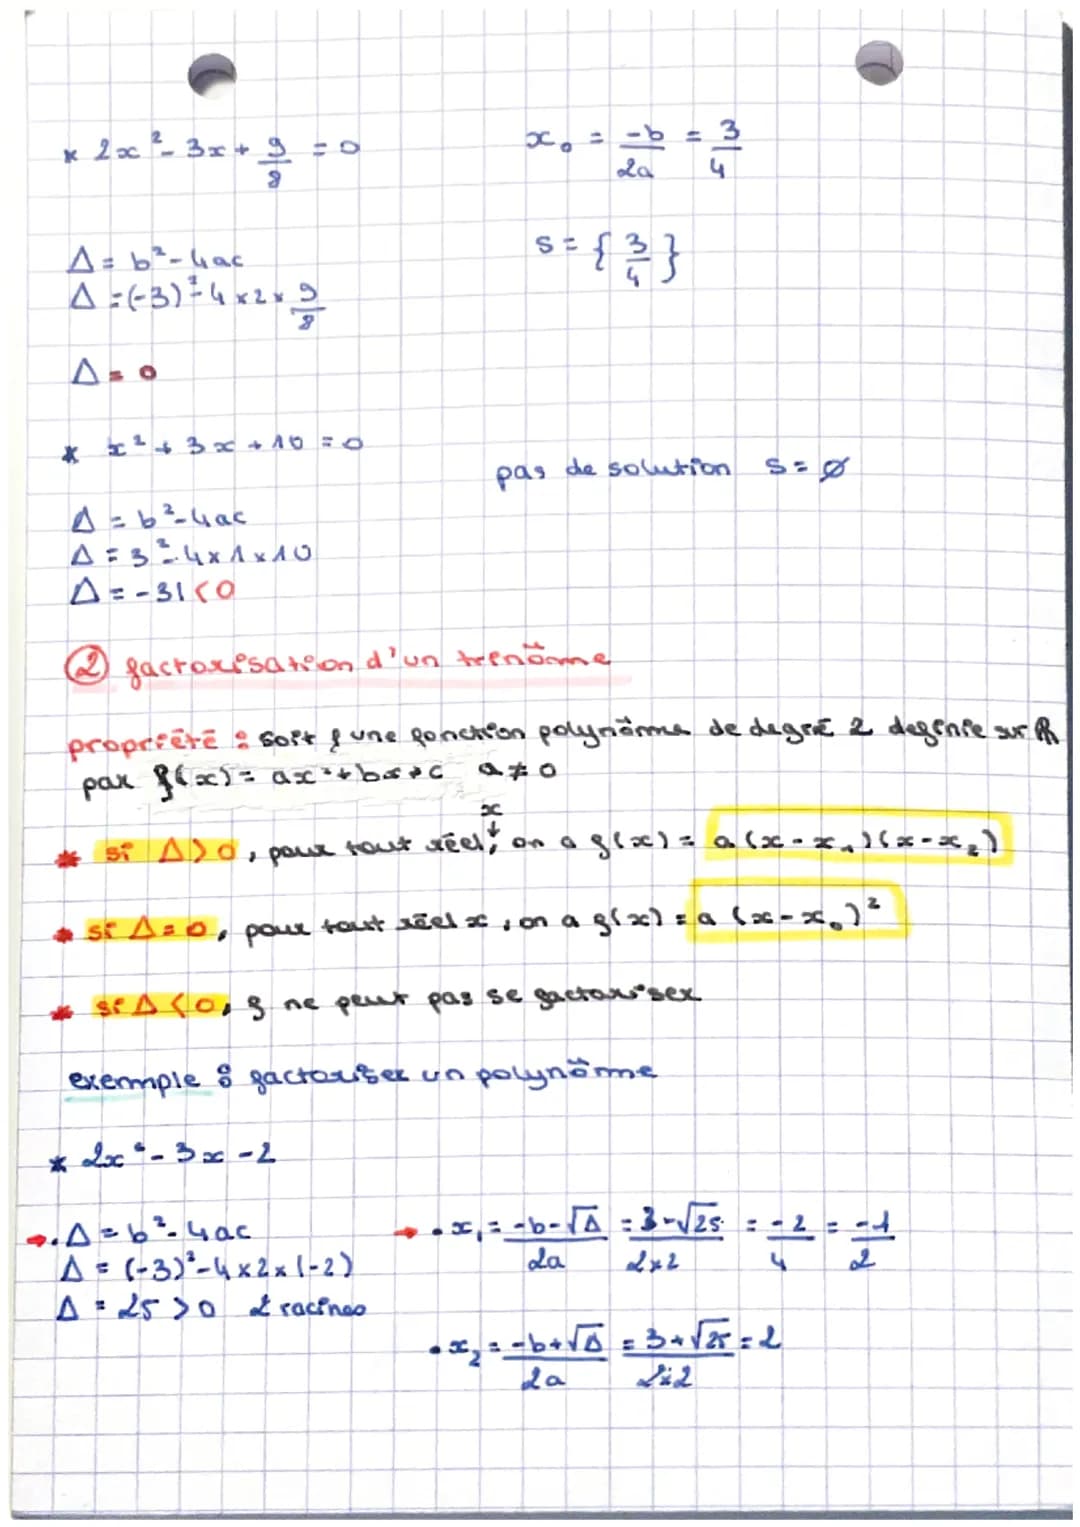 * 2x² - 3x + 9/8 = 0
x₀ = -b/2a = 3/4
Δ = b² - 4ac
S = { 3/4 }
Δ = (-3)² - 4 × 2 × 9/8
Δ = 0
* x² + 3x + 10 = 0
pas de solution S = ∅
Δ = b² - 4ac
Δ = 3² - 4 × 1 × 10
Δ = -31 < 0
② factorisation d'un trinôme
propriété : soit f une fonction polynôme de degré 2 définie sur ℝ
par f(x) = ax² + bx + c a ≠ 0
* si Δ > 0, pour tout réel x, on a f(x) = a (x - x₁)(x - x₂)
* si Δ = 0, pour tout réel x, on a f(x) = a (x - x₀)²
* si Δ < 0, f ne peut pas se factoriser
exemple : factoriser un polynôme
* 2x² - 3x - 2
→ • Δ = b² - 4ac
Δ = (-3)² - 4 × 2 × (-2)
Δ = 25 > 0 2 racines
→ • x₁ = (-b - √Δ)/2a = (3 - √25)/(2 × 2) = -2/4 = -1/2
• x₂ = (-b + √Δ)/2a = (3 + √25)/(2 × 2) = 2